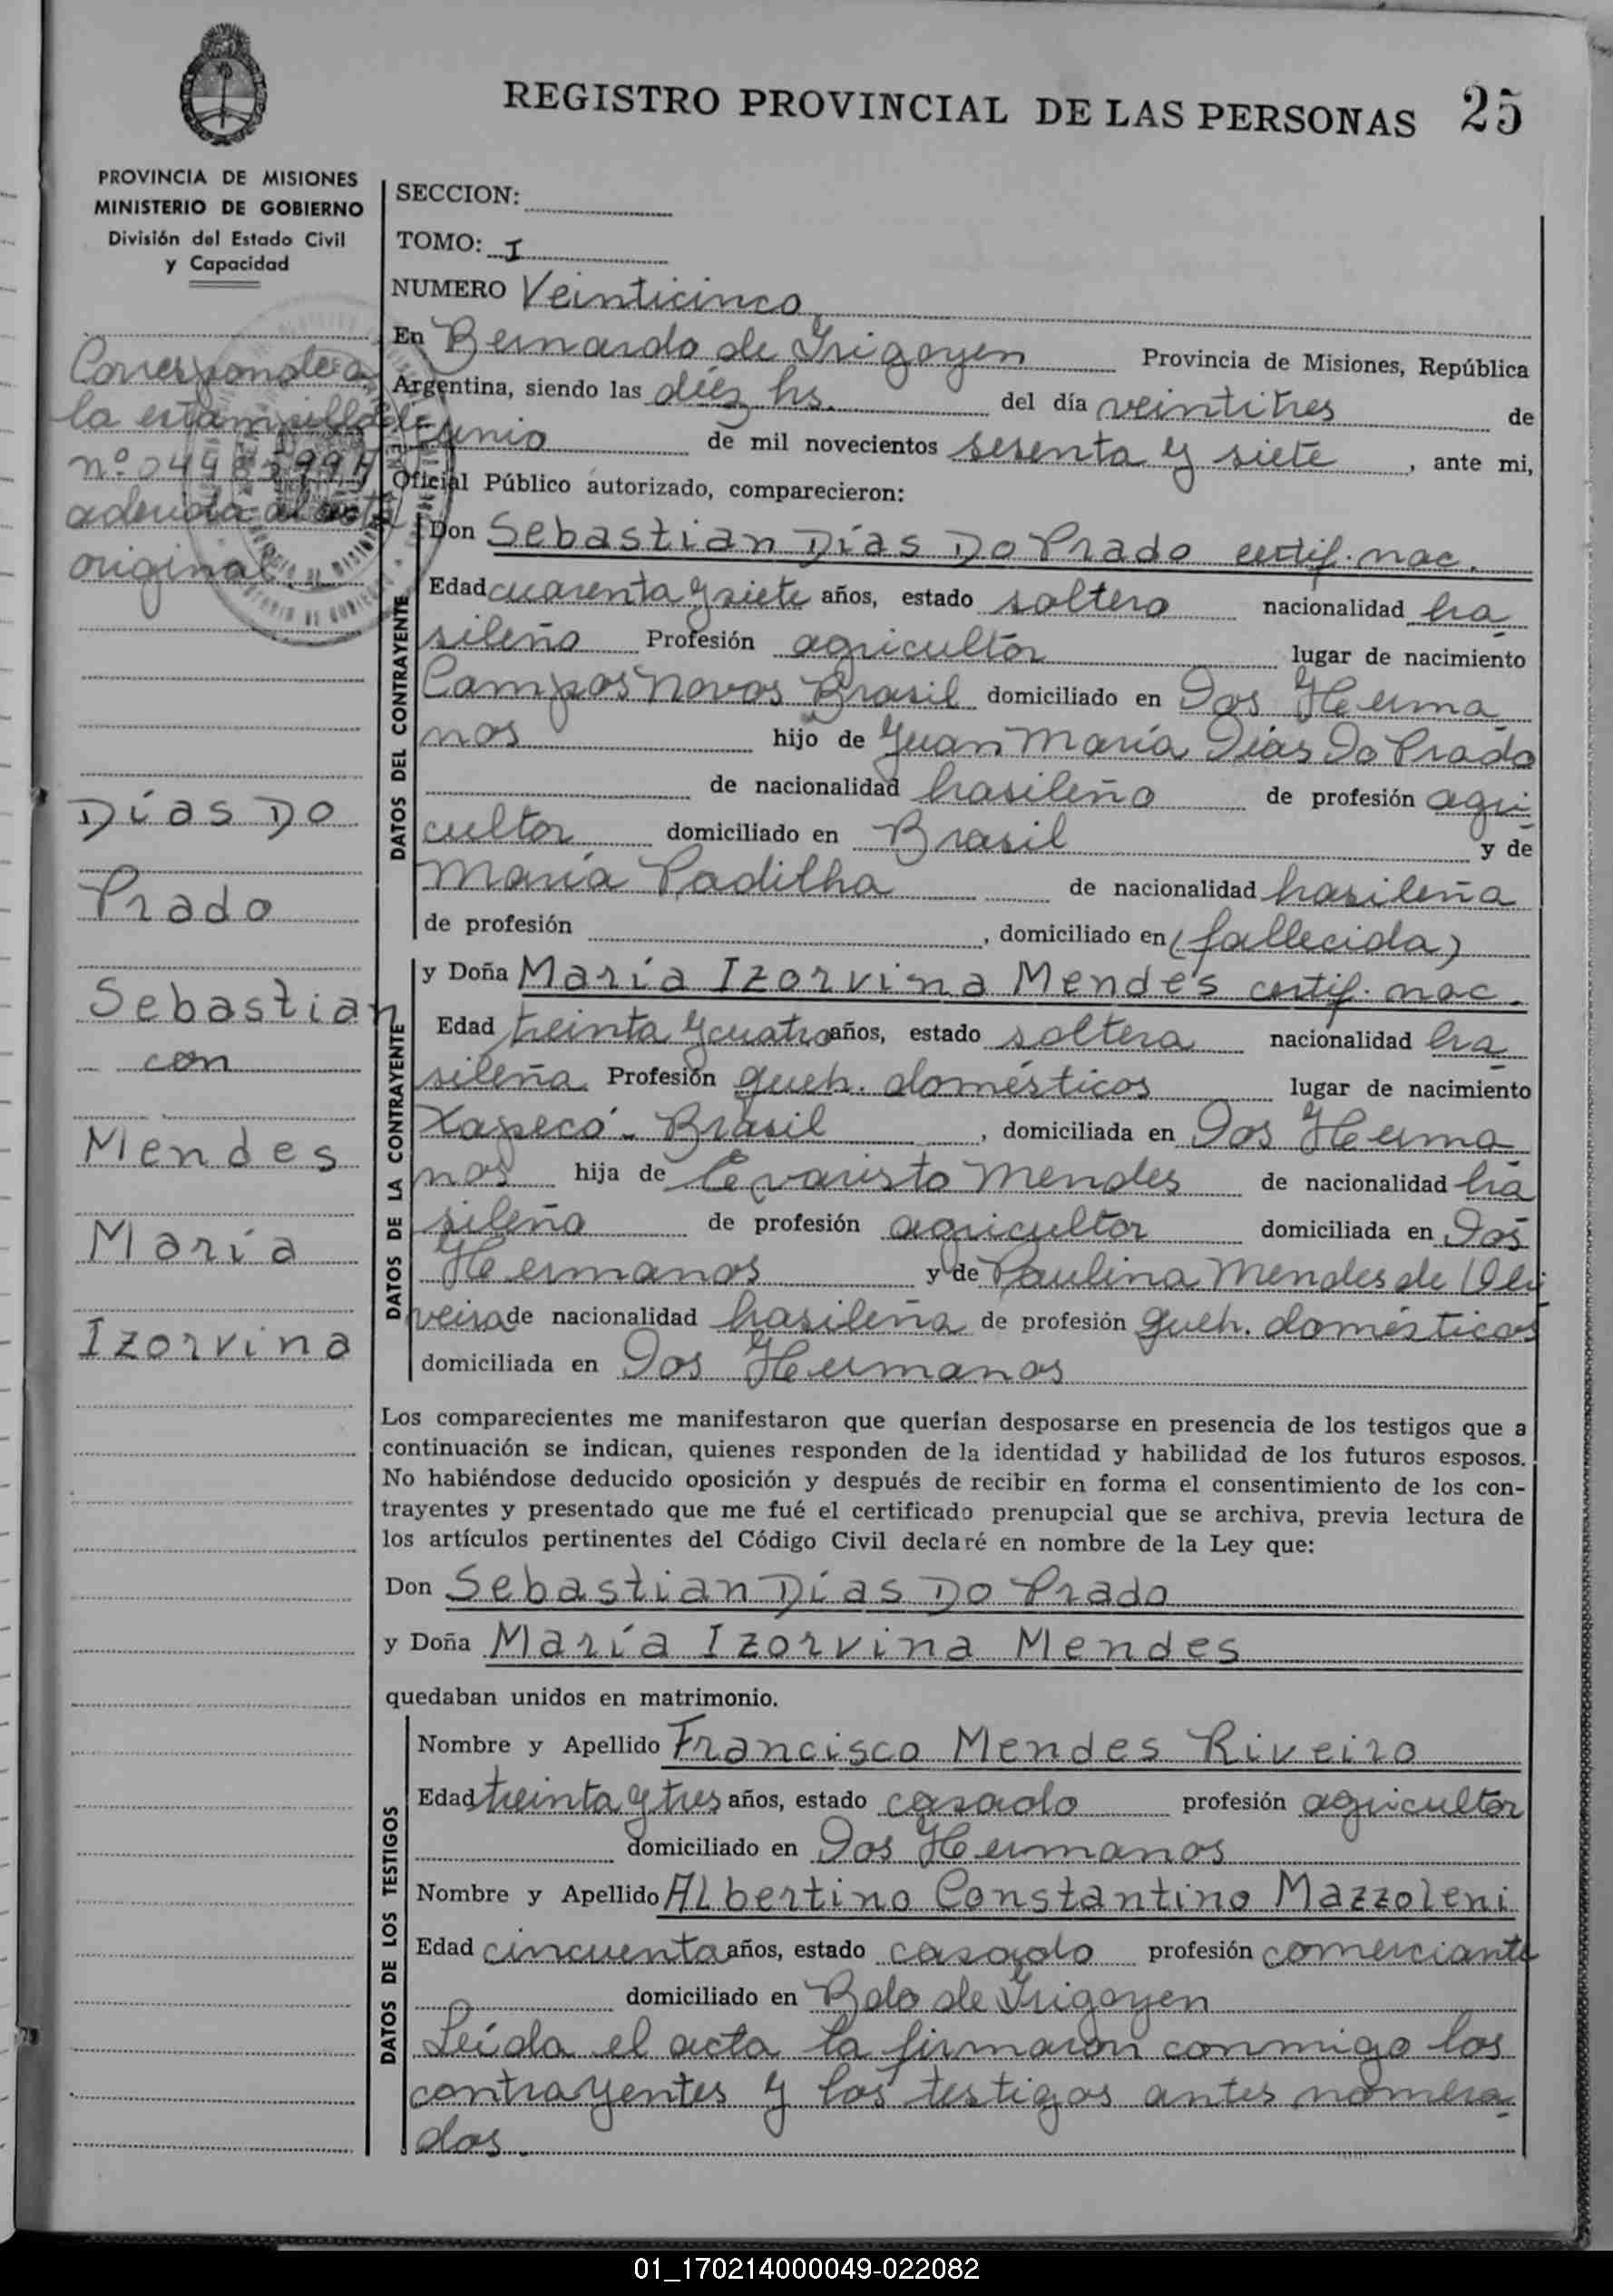 REGISTRO PROVINCIAL DE LAS PERSONAS 25
PROVINCIA DE MISIONES
MINISTERIO DE GOBIERNO
División del Estado Civil
y Capacidad
Corresponde a
la estampilla
nº
adherida al acta
original
Días Do
Prado
Sebastian
con
Mendes
María
Izorvina
SECCION:
TOMO: I
NUMERO Veinticinco
En Bernardo de Irigoyen Provincia de Misiones, República
Argentina, siendo las diéz hs. del día veintitres de
junio de mil novecientos sesenta y siete, ante mi,
Oficial Público autorizado, comparecieron:
DATOS DEL CONTRAYENTE
Don Sebastian Días Do Prado certif. nac.
Edad cuarenta y siete años, estado soltero nacionalidad bra
sileño Profesión agricultor lugar de nacimiento
Campos Novos Brasil domiciliado en Dos Herma
nos hijo de Juan María Dias Do Prado
de nacionalidad brasileño de profesión agri
cultor domiciliado en Brasil y de
María Padilha de nacionalidad brasileña
de profesión , domiciliado en (fallecida)
DATOS DE LA CONTRAYENTE
y Doña María Izorvina Mendes certif. nac.
Edad treinta y cuatro años, estado soltera nacionalidad bra
sileña Profesión queh. domésticos lugar de nacimiento
Xapecó - Brasil , domiciliada en Dos Herma
nos hija de Evaristo Mendes de nacionalidad bra
sileño de profesión agricultor domiciliada en Dos
Hermanos y de Paulina Mendes de Oli
veira de nacionalidad brasileña de profesión queh. domésticos
domiciliada en Dos Hermanos
Los comparecientes me manifestaron que querían desposarse en presencia de los testigos que a
continuación se indican, quienes responden de la identidad y habilidad de los futuros esposos.
No habiéndose deducido oposición y después de recibir en forma el consentimiento de los con-
trayentes y presentado que me fué el certificado prenupcial que se archiva, previa lectura de
los artículos pertinentes del Código Civil declaré en nombre de la Ley que:
Don Sebastian Días Do Prado
y Doña María Izorvina Mendes
quedaban unidos en matrimonio.
DATOS DE LOS TESTIGOS
Nombre y Apellido Francisco Mendes Riveiro
Edad treinta y tres años, estado casado profesión agricultor
domiciliado en Dos Hermanos
Nombre y Apellido Albertino Constantino Mazzoleni
Edad cincuenta años, estado casado profesión comerciante
domiciliado en Bdo de Irigoyen
Leída el acta la firmaron conmigo los
contrayentes y los testigos antes nombra
dos.
01_170214000049-022082